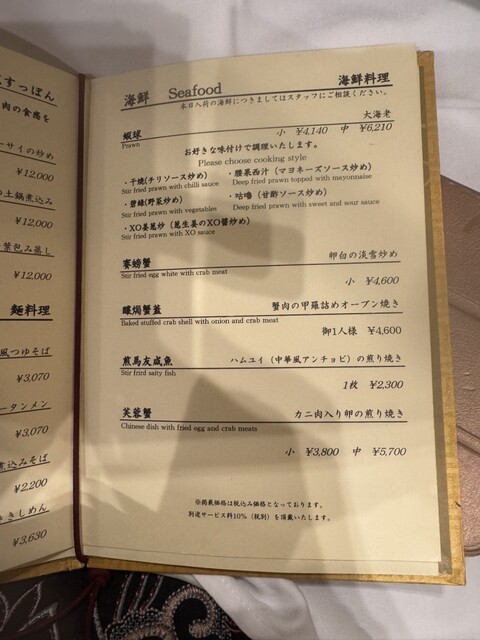 すっぽん
肉の食感を
ーサイの炒め
¥12,000
の土鍋煮込み
¥12,000
葉包み蒸し
¥12,000
麺料理
風つゆそば
¥3,070
ータンメン
¥3,070
煮込みそば
¥2,200
きしめん
¥3,630
海鮮 Seafood 海鮮料理
本日入荷の海鮮につきましてはスタッフにご相談ください。
蝦球 大海老
Prawn 小 ¥4,140 中 ¥6,210
お好きな味付けで調理いたします。
Please choose cooking style
・干焼(チリソース炒め) ・腰果西汁(マヨネーズソース炒め)
Stir fried prawn with chilli sauce Deep fried prawn topped with mayonnaise
・碧緑(野菜炒め) ・咕嚕(甘酢ソース炒め)
Stir fried prawn with vegetables Deep fried prawn with sweet and sour sauce
・XO姜葱炒(葱生姜のXO醤炒め)
Stir fried prawn with XO sauce
賽螃蟹 卵白の淡雪炒め
Stir fried egg white with crab meat
小 ¥4,600
焗蟹蓋 蟹肉の甲羅詰めオーブン焼き
Baked stuffed crab shell with onion and crab meat
御1人様 ¥4,600
煎馬友咸魚 ハムユイ(中華風アンチョビ)の煎り焼き
Stir frird salty fish
1枚 ¥2,300
芙蓉蟹 カニ肉入り卵の煎り焼き
Chinese dish with fried egg and crab meats
小 ¥3,800 中 ¥5,700
※掲載価格は税込み価格となっております。
別途サービス料10%(税別)を頂戴いたします。